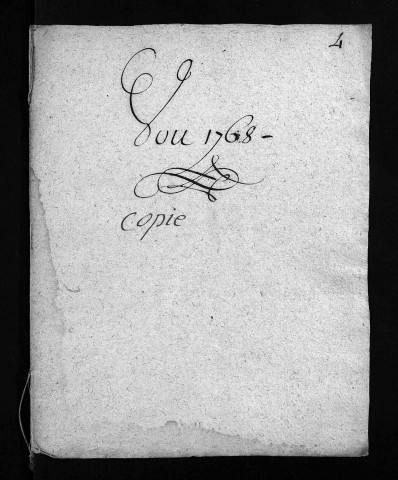 4
You 1768 -
copie